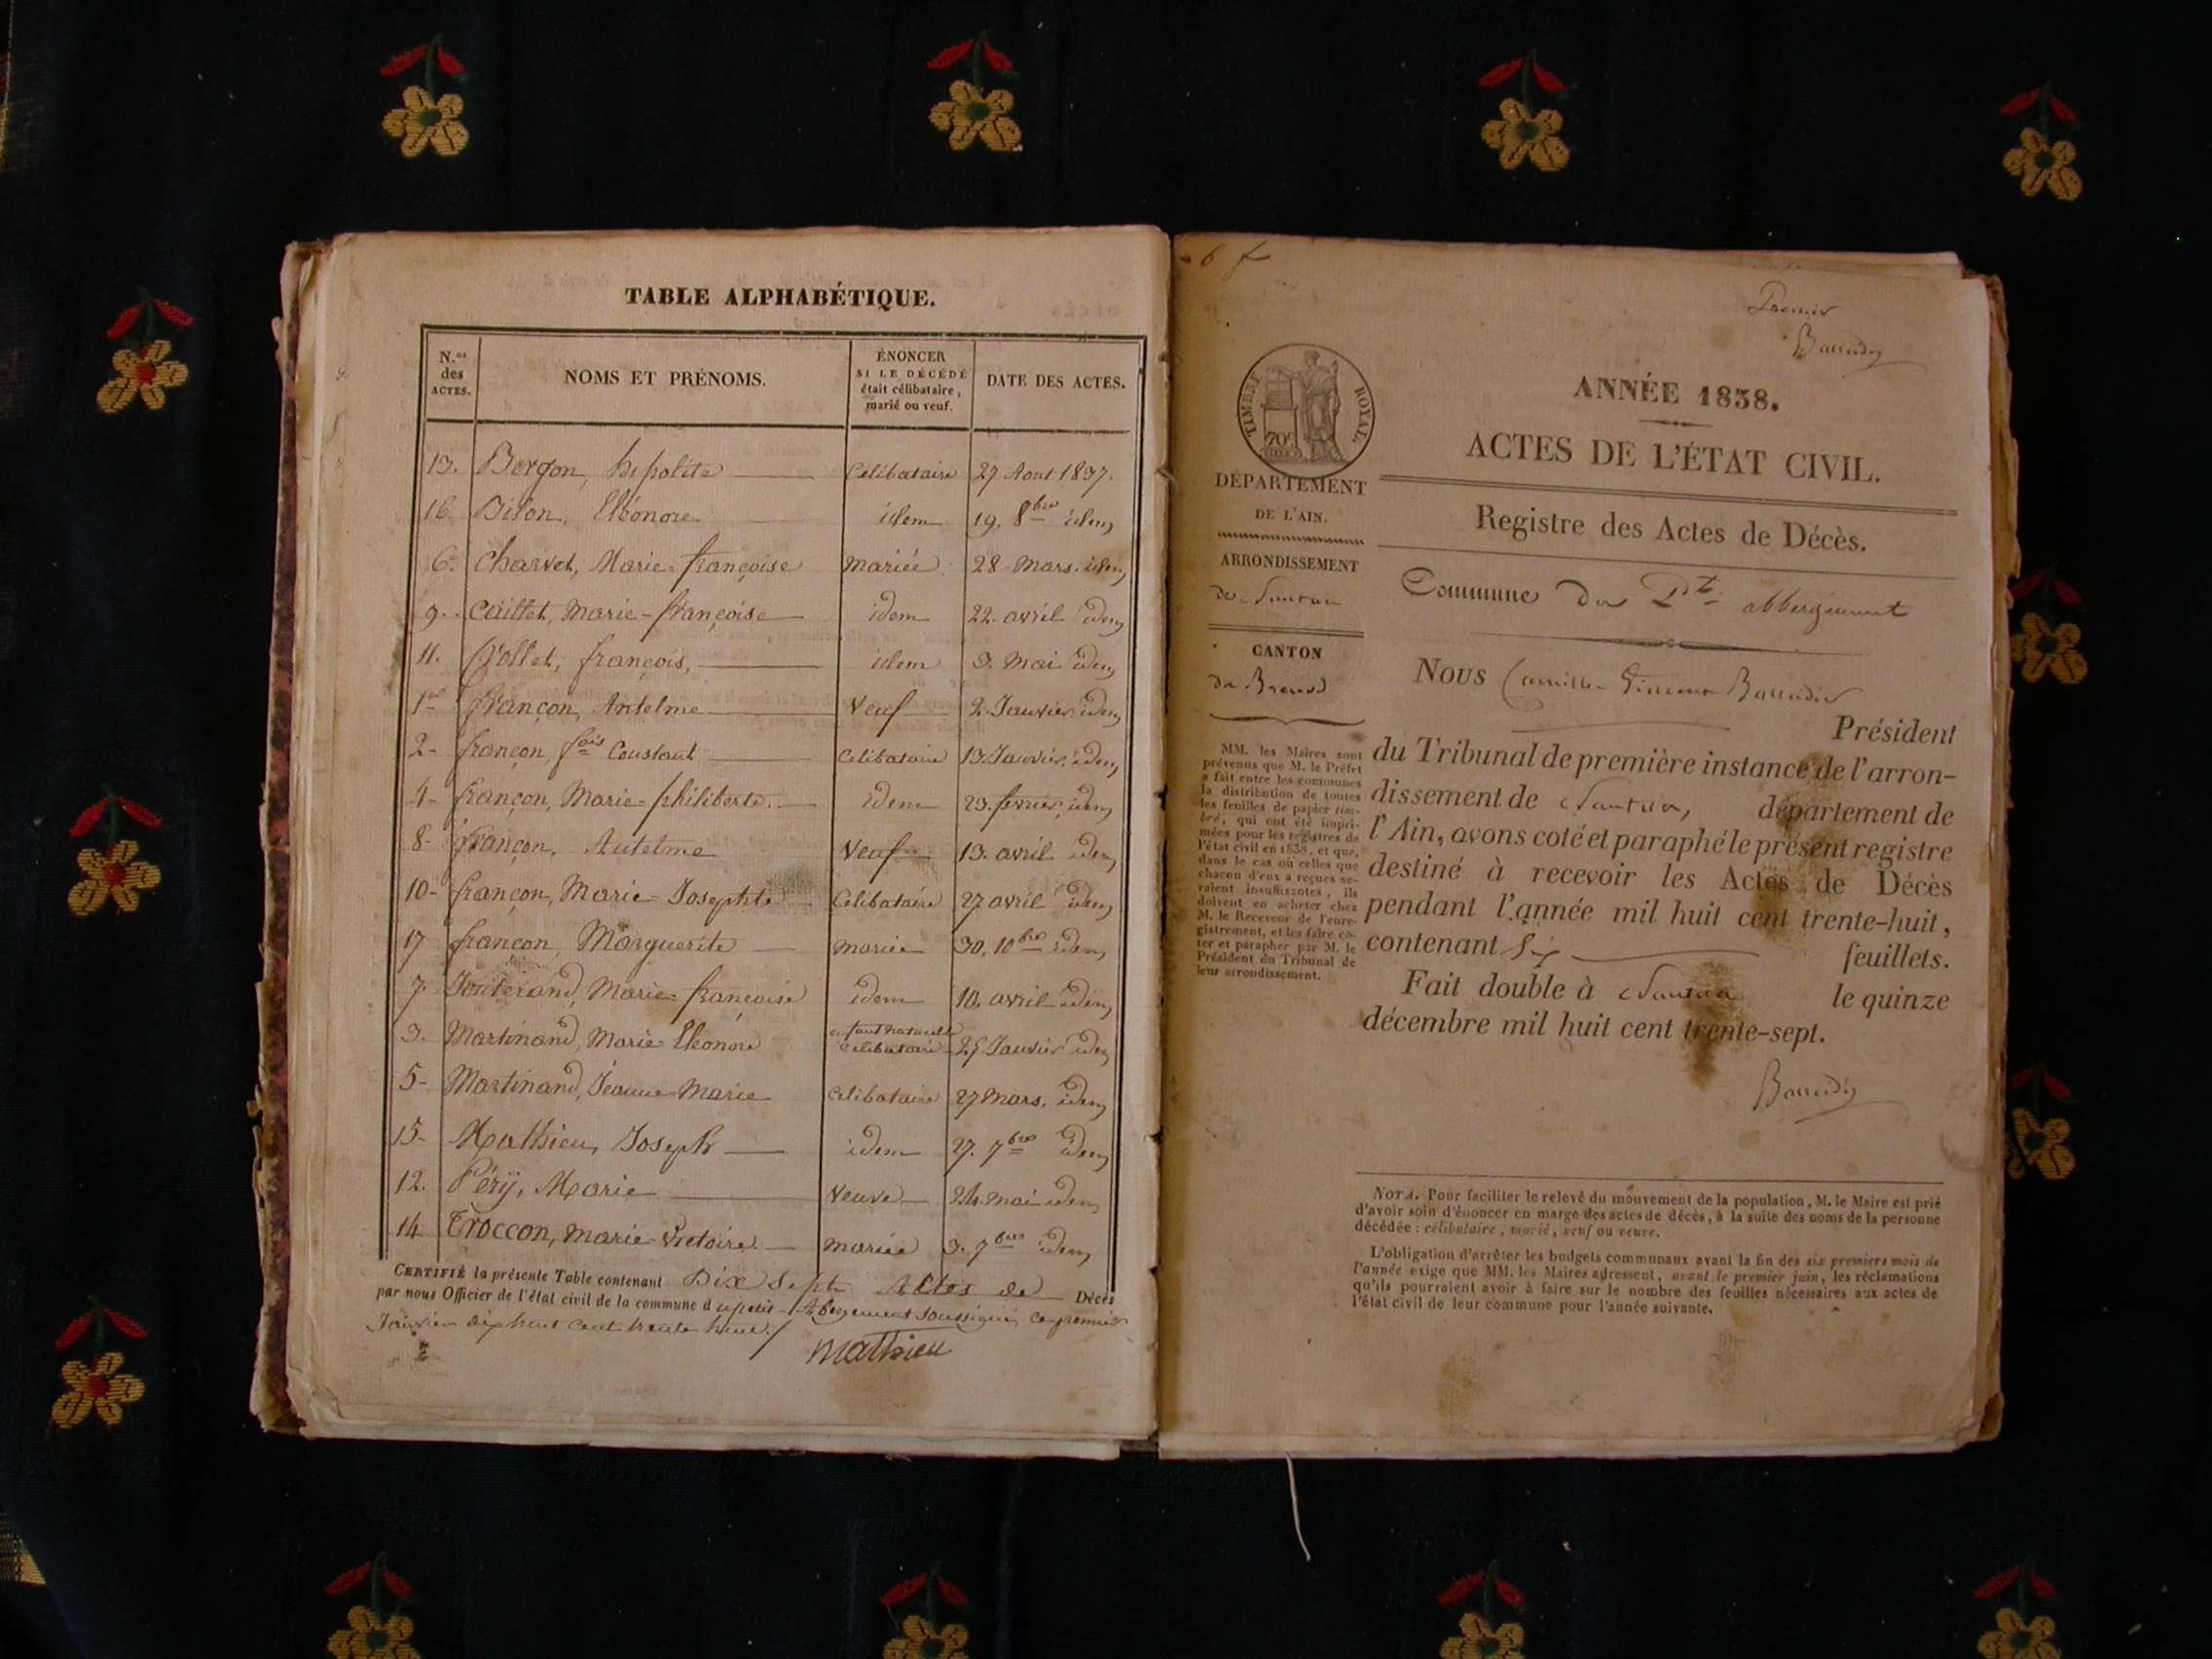 TABLE ALPHABÉTIQUE.
N.os des ACTES.
NOMS ET PRÉNOMS.
ÉNONCER
SI LE DÉCÉDÉ
était célibataire,
marié ou veuf.
DATE DES ACTES.
13. Bergon, hipolite Celibataire 27 Aout 1837.
16. Bilon, Eléonore idem 19, 8bre idem
6. Charvet, Marie-françoise mariée 28 Mars idem
9. Caillet, Marie-françoise idem 22. avril idem
11. Collet, françois, idem 3. Mai idem
1er françon, Antelme Veuf 2. Janvier idem
2- françon, fois Constant Celibataire 13. Janvier idem
4- françon, Marie-philiberte. idem 23. fevrier, idem
8- françon, Antelme Veuf 13. avril idem
10- françon, Marie-Josephte Celibataire 27 avril idem
17 françon, Marguerite mariée 30, 10bre idem
7. Marie-françoise idem 10, avril idem
3. Martinand, Marie Eléonore enfant naturelle celibataire 25 Janvier idem
5- Martinand, Jeanne Marie Celibataire 27 Mars, idem
15- Mathieu, Joseph idem 27. 7bre idem
12. Péry, Marie Veuve 24. mai idem
14 Troccon, Marie Victoire mariée 3. 7bre idem
CERTIFIÉ la présente Table contenant Dix Sept Actes de Décès
par nous Officier de l'état civil de la commune d u petit-Abergement soussigné, ce premier
Janvier dix huit cent trente huit./
Mathieu
6 f
Premier
ANNÉE 1838.
ACTES DE L'ÉTAT CIVIL.
TIMBRE ROYAL
70c
DÉPARTEMENT
DE L'AIN.
ARRONDISSEMENT
de Nantua
CANTON
de Brenod
Registre des Actes de Décès.
Commune du Pt abbergement
Nous Camille-Vincent
Président
du Tribunal de première instance de l'arron-
dissement de Nantua, département de
l'Ain, avons coté et paraphé le présent registre
destiné à recevoir les Actes de Décès
pendant l'année mil huit cent trente-huit,
contenant Six feuillets.
Fait double à Nantua le quinze
décembre mil huit cent trente-sept.
MM. les Maires sont
prévenus que M. le Préfet
a fait entre les communes
la distribution de toutes
les feuilles de papier tim-
bré, qui ont été impri-
mées pour les registres de
l'état civil en 1838, et que,
dans le cas où celles que
chacun d'eux a reçues se-
raient insuffisantes, ils
doivent en acheter chez
M. le Receveur de l'enre-
gistrement, et les faire co-
ter et parapher par M. le
Président du Tribunal de
leur arrondissement.
NOTA. Pour faciliter le relevé du mouvement de la population, M. le Maire est prié
d'avoir soin d'énoncer en marge des actes de décès, à la suite des noms de la personne
décédée : célibataire, marié, veuf ou veuve.
L'obligation d'arrêter les budgets communaux avant la fin des six premiers mois de
l'année exige que MM. les Maires adressent, avant le premier juin, les réclamations
qu'ils pourraient avoir à faire sur le nombre des feuilles nécessaires aux actes de
l'état civil de leur commune pour l'année suivante.